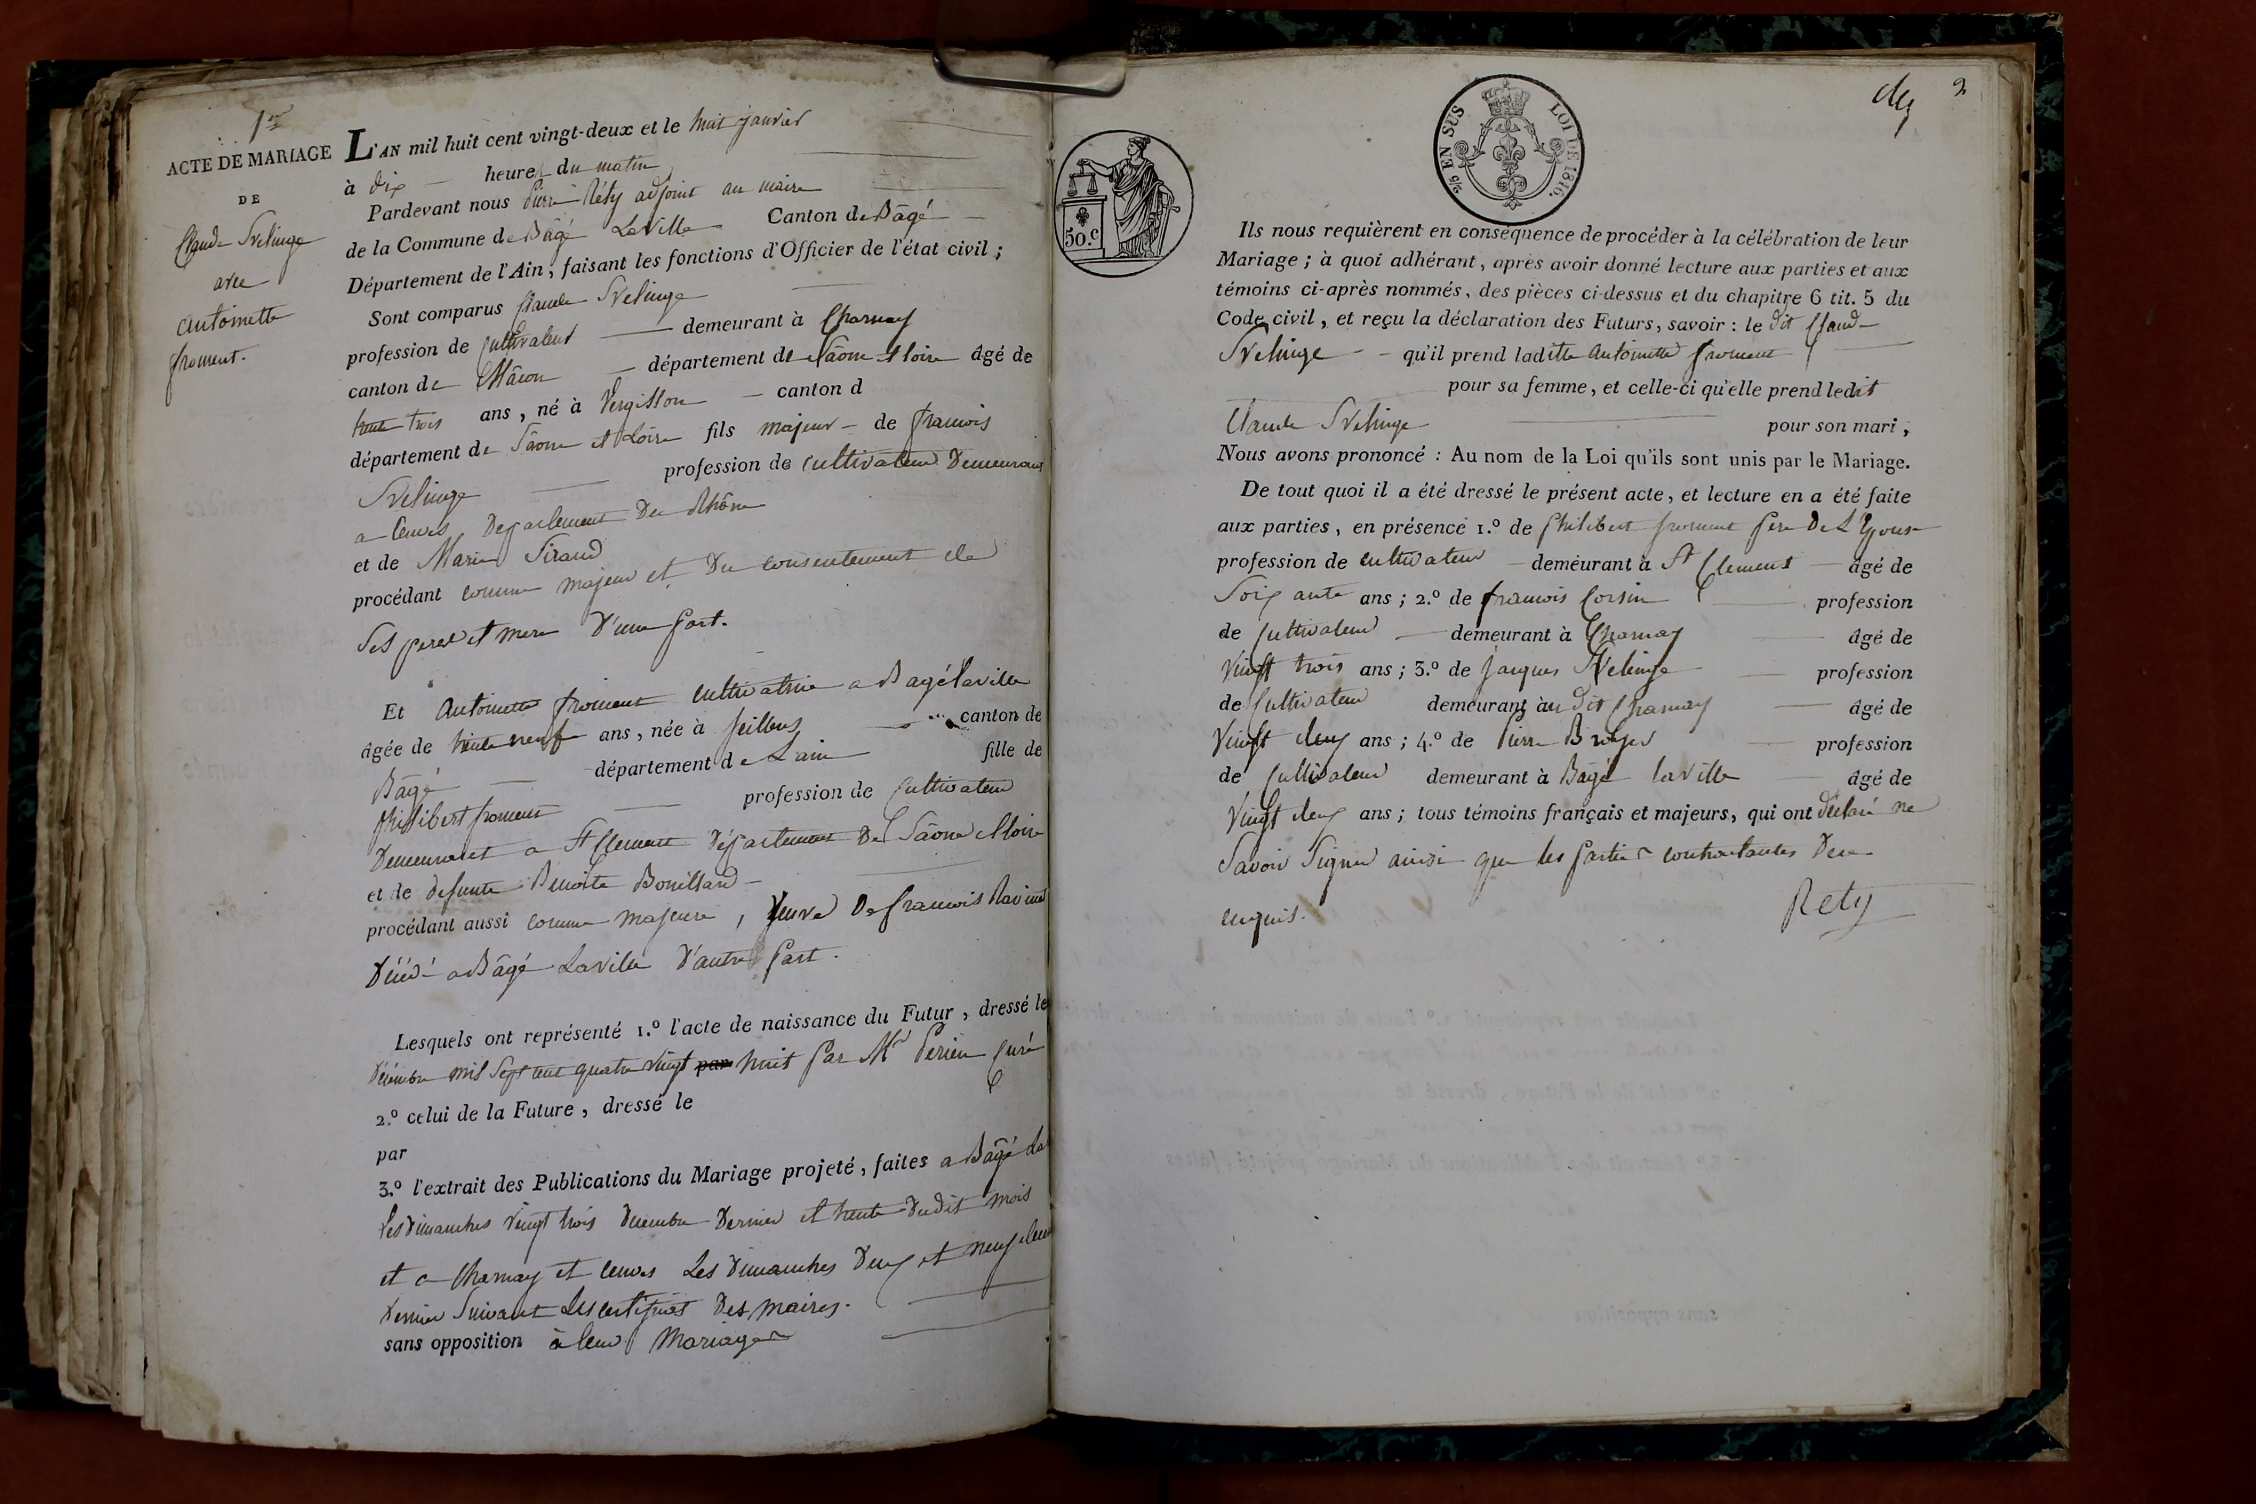 1er
ACTE DE MARIAGE
DE
Claude Svelinge
avec
antoinette
froment.
L'AN mil huit cent vingt-deux et le huit janvier
à dix heures du matin
Pardevant nous Pierre Réty adjoint au maire
de la Commune de Bâgé LaVille Canton de Bâgé
Département de l'Ain, faisant les fonctions d'Officier de l'état civil ;
Sont comparus Claude Svelinge
profession de Cultivateur demeurant à Charnay
canton de Mâcon département de Sâone et loire âgé de
trente trois ans, né à Vergisson canton d
département de Sâone et Loire fils majeur de francois
Svelinge profession de Cultivateur Demeurant
a Cenves Departement Du Rhône
et de Marie Siraud
procédant comme majeur et Du consentement de
Ses peres et mere D'une part.
Et Antoinette froment cultivatrice a Bagé laville
âgée de trente neuf ans, née à feillens canton de
Bâgé département de Lain fille de
philibert froment profession de Cultivateur
Demeurant a St Clement Département De Sâone et loire
et de defunte Benoite Bouillard
procédant aussi comme majeure, Veuve De francois Ravinet
Décédé a Bâgé Laville D'autre part.
Lesquels ont représenté 1.º l'acte de naissance du Futur, dressé le
Décembre mil Sept cent quatre vingt par huit par Mr Perier Curé
2.º celui de la Future, dressé le
par
3.º l'extrait des Publications du Mariage projeté, faites a Bâgé la
Les Dimanches Vingt trois Decembre Dernier et trente Dudit mois
et a Charnay et Cenves Les Dimanches Deux et neuf
Dernier Suivant Les certificat Des maires.
sans opposition à leur Mariage
50.C
5/2 EN SUS LOI DE 1816.
deux 2
Ils nous requièrent en conséquence de procéder à la célébration de leur
Mariage ; à quoi adhérant, après avoir donné lecture aux parties et aux
témoins ci-après nommés, des pièces ci-dessus et du chapitre 6 tit. 5 du
Code civil, et reçu la déclaration des Futurs, savoir : le dit Claude
Svelinge qu'il prend ladite Antoinette froment
pour sa femme, et celle-ci qu'elle prend ledit
Claude Svelinge pour son mari,
Nous avons prononcé : Au nom de la Loi qu'ils sont unis par le Mariage.
De tout quoi il a été dressé le présent acte, et lecture en a été faite
aux parties, en présence 1.º de philibert froment pere De L'Epouse
profession de cultivateur demeurant à St Clement âgé de
Soixante ans ; 2.º de francois Corsin profession
de Cultivateur demeurant à Charnay âgé de
Vingt trois ans ; 3.º de Jacques Svelinge profession
de Cultivateur demeurant au dit Charnay âgé de
Vingt deux ans ; 4.º de Pierre Broyer profession
de Cultivateur demeurant à Bâgé laville âgé de
Vingt deux ans ; tous témoins français et majeurs, qui ont déclaré ne
Savoir Signer ainsi que les parties contractantes De ce
enquis.
Rety